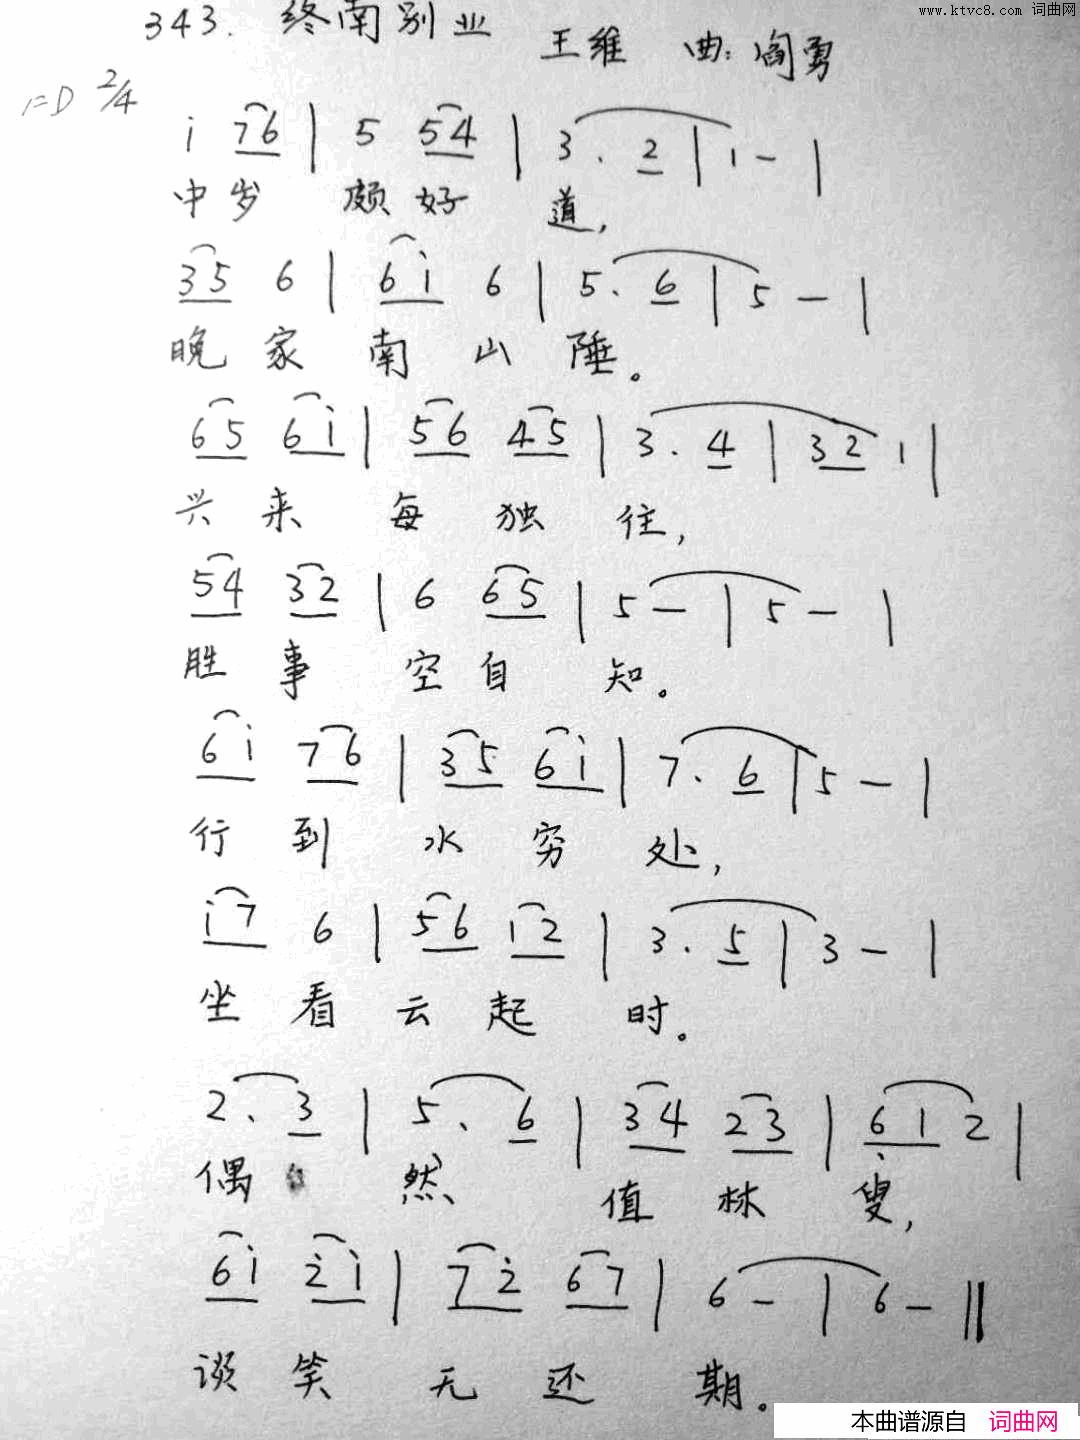 www.ktvc8.com 词曲网
343. 终南别业
王维 曲:阎勇
1=D 2/4
i 76 | 5 54 | 3. 2 | 1 - |
中岁 颇好 道,
35 6 | 6i 6 | 5. 6 | 5 - |
晚家南山陲。
65 6i | 56 45 | 3. 4 | 32 1 |
兴来每独往,
54 32 | 6 65 | 5 - | 5 - |
胜事空自知。
6i 76 | 35 6i | 7. 6 | 5 - |
行到水穷处,
i7 6 | 56 12 | 3. 5 | 3 - |
坐看云起时。
2. 3 | 5. 6 | 34 23 | 6̣1 2 |
偶然值林叟,
6i 2̇i | 72̇ 67 | 6 - | 6 - ‖
谈笑无还期。
本曲谱源自 词曲网